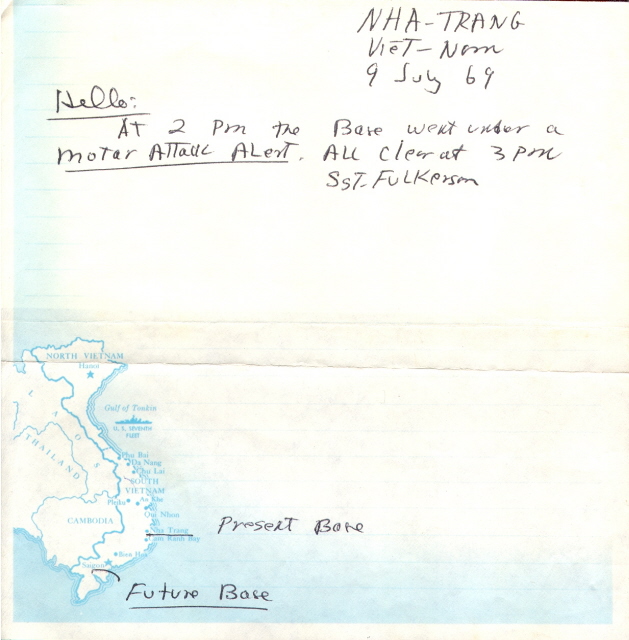 NHA-TRANG
Viet-Nam
9 July 69
Hello:
At 2 Pm the Base went under a
motar Attack Alert. All Clear at 3 pm
SST. Fulkerson
NORTH VIETNAM
Hanoi
LAOS
Gulf of Tonkin
U. S. SEVENTH
FLEET
THAILAND
Phu Bai
Da Nang
Chu Lai
SOUTH
VIETNAM
Pleiku
An Khe
Qui Nhon
CAMBODIA
Nha Trang
Present Base
Cam Ranh Bay
Bien Hoa
Saigon
Future Base